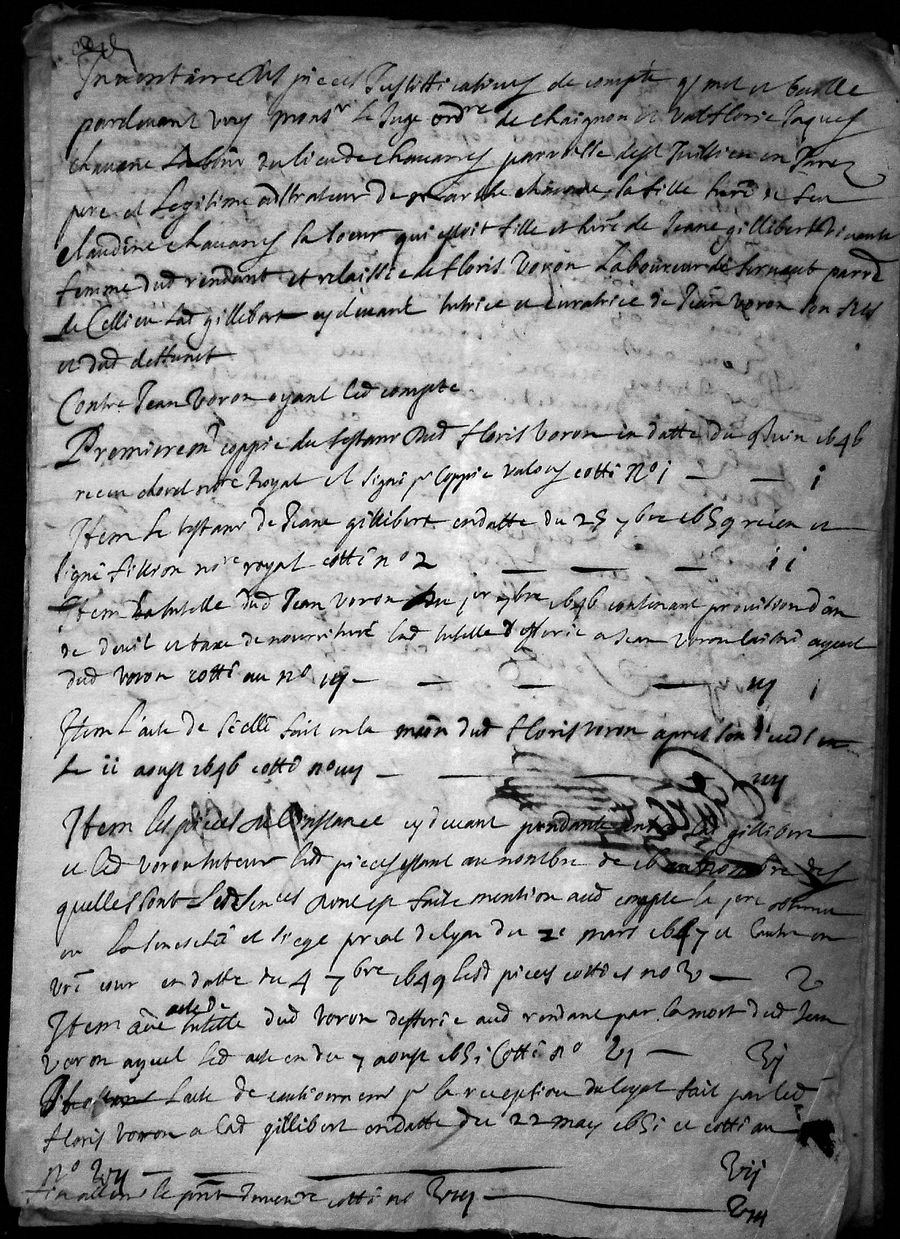 Inventaire des pieces Justifficatives de compte q met et baille
pardevant vous monsr le Juge ordre de chaignon et valflorie Jaques
chavane du lieu de chavanes parroisse de st Jullien en Jarez
pere et Legitime adtrateur de chavane sa fille herè de feu
claudine chavanes sa soeur qui estoit fille et herè de Jeane gillibert vivante
femme dud rendant et relaissée de floris voron Laboureur de parr
de Cellieu Lad gillibert cydevant tutrice et curatrice de Jean voron son filz
et dud deffunct
Contre Jean voron oyant led compte
Premieremt coppie du testamt dud floris voron en datte du 9 Juin 1646
receu notre Royal et signé pr Coppie valous cotté No i — — i
Item le testamt de Jeane gillibert en datte du 25 7bre 1659 receu et
signé fillion nore royal cotté no 2 — — — ii
Item la tutelle dud Jean voron du jer 7bre 1646 contenant provision d'an
de deuil et taxe de nourriture lad tutelle defferée a Jean voron ayeul
dud voron cotté au no iij — — — — iij
Item l'acte de scellé fait en la maison dud floris voron apres son deceds
le ii aoust 1646 cotté no iiij — — iiij
Item les pieces de l'instance cydevant pendante entre lad gillibert
et led voron tuteur lesd pieces estant au nombre de 16
quelles sont les sences dont est faite mention aud compte la jere obtenue
en la seneschée et siege preal de lyon du 2e mars 1647 et l'autre en
vre cour en datte du 4 7bre 1649 lesd pieces cottées no v — v
Item acte de tutelle dud voron defferée aud rendant par la mort dud Jean
voron ayeul led acte en du 7 aoust 1651 Cotté no vj — vj
l'acte de cautionnemt pr la reception du legat fait par led
floris voron a lad gillibert en datte du 22 may 1651 et cotté au
no vij — — vij
le prnt inventre cotté no viij — viij